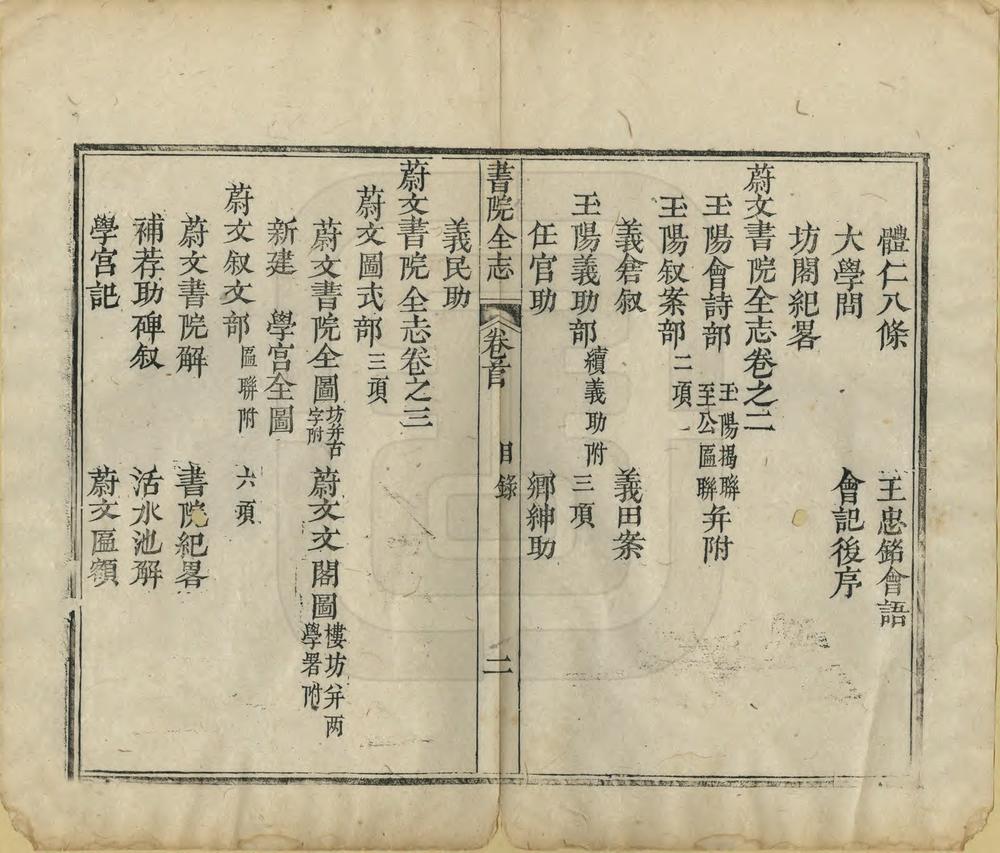 體仁八條　王忠銘會語
大學問　會記後序
坊閣紀畧
蔚文書院全志卷之二
玉陽會詩部　玉陽揭聯
至公匾聯　弁附
玉陽叙案部　二項
義倉叙　義田案
玉陽義助部　續義助附　三項
任官助　鄉紳助
書院全志　卷首　目錄　二
義民助
蔚文書院全志卷之三
蔚文圖式部　三項
蔚文書院全圖　坊弁古
字附　蔚文文閣圖　樓坊弁两
學署附
新建　學宮全圖
蔚文叙文部　匾聯附　六項
蔚文書院解　書院紀畧
補荐助碑叙　活水池解
學宮記　蔚文匾額